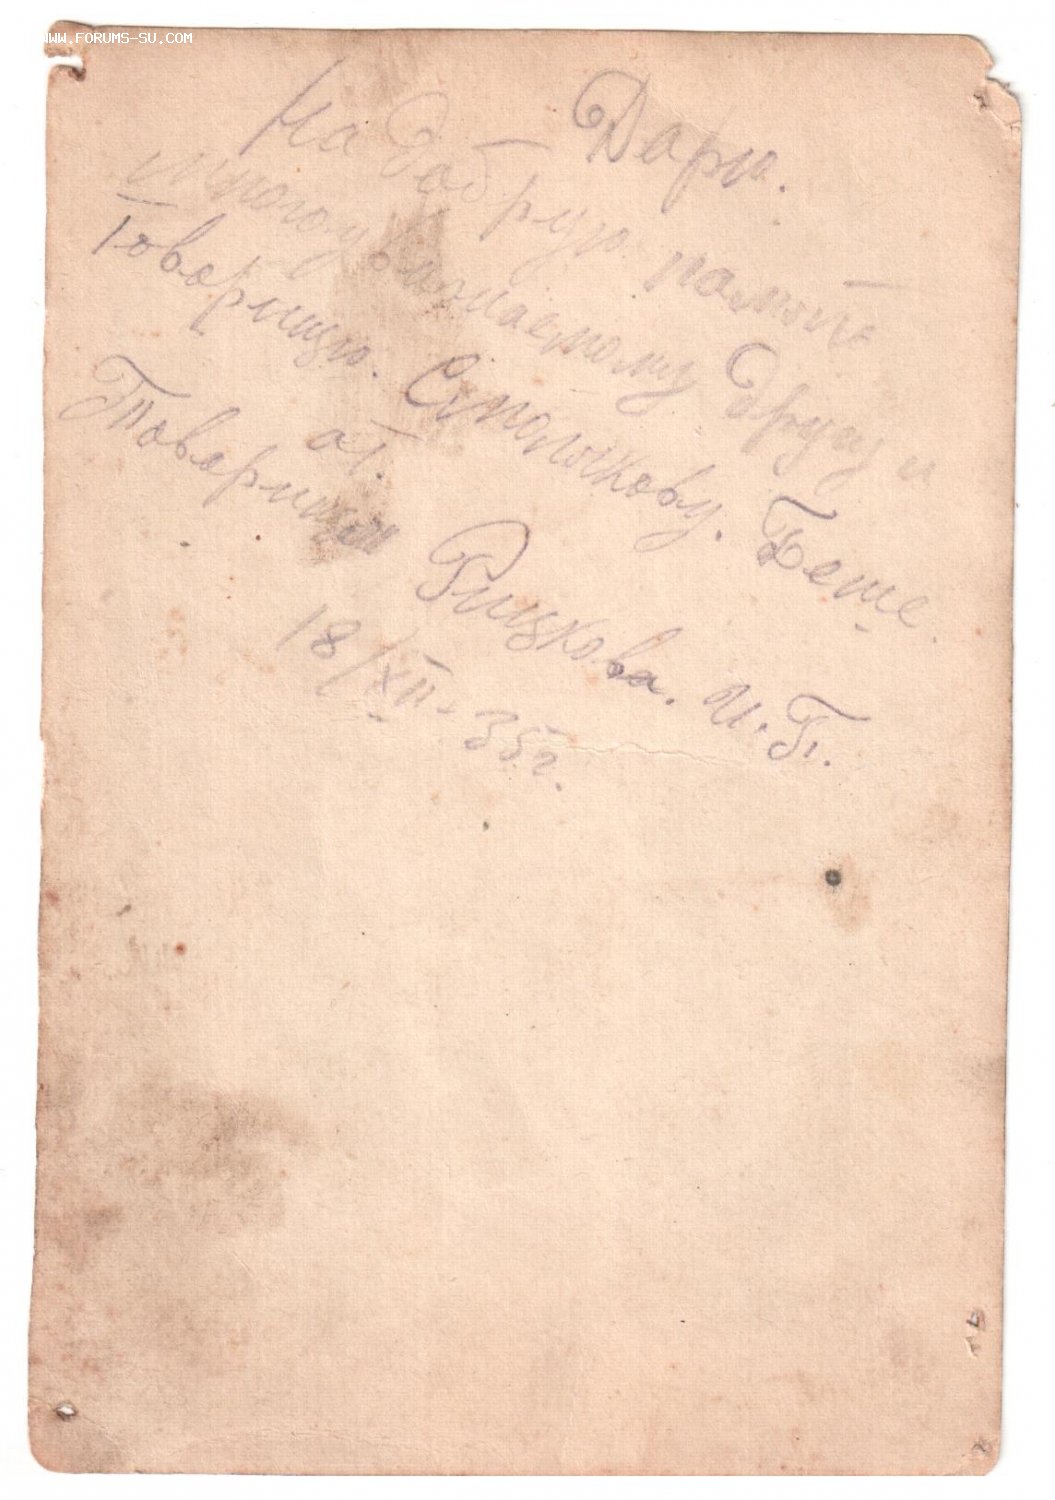 WWW.FORUMS-SU.COM
Дарю.
На добрую память
многоуважаемому другу и
Товарищу. Смолькову. Беше.
от.
Товарища Рицкова. И. Г.
18/XII-35г.